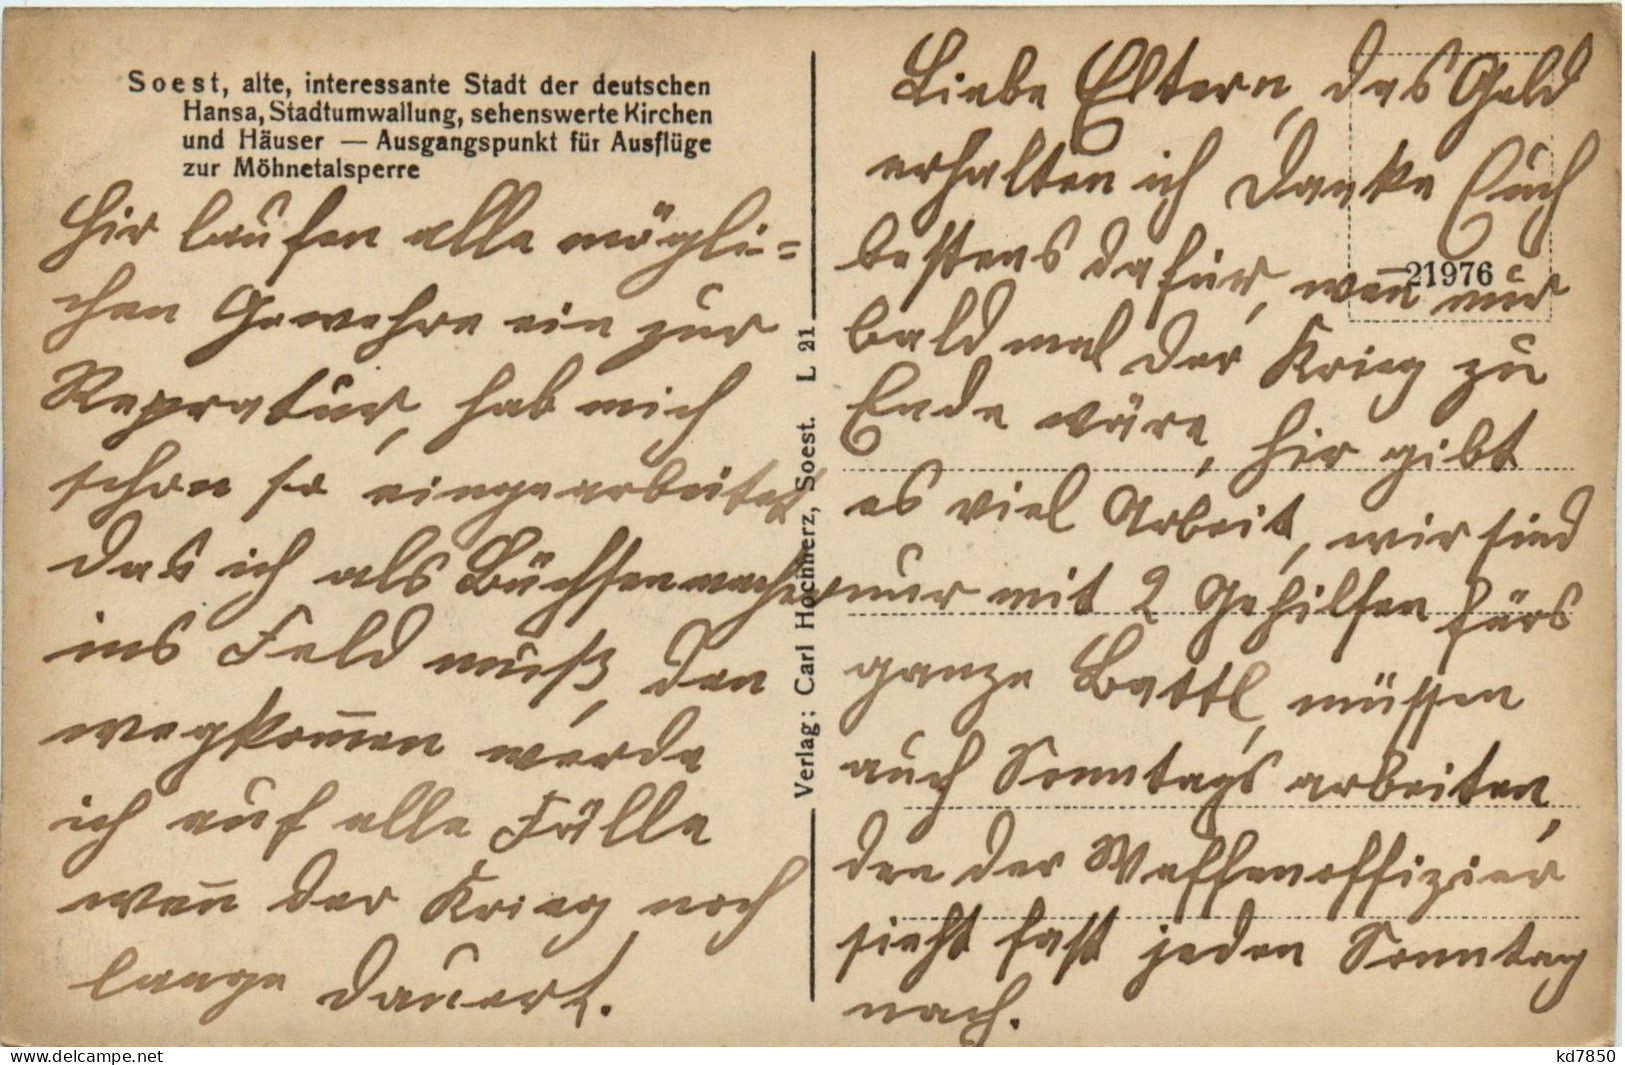 Soest, alte, interessante Stadt der deutschen
Hansa, Stadtumwallung, sehenswerte Kirchen
und Häuser — Ausgangspunkt für Ausflüge
zur Möhnetalsperre
Hir laufen alle mögli=
chen Gewehre ein zur
Repratur, hab mich
schon so eingearbeitet
das ich als Büchsenmacher
ins Feld muß, den
wegkom̄en werde
ich auf alle Fälle
wen̄ der Krieg noch
lange dauert.
Verlag: Carl Hochherz, Soest. L 21
Liebe Eltern, das Geld
erhalten ich danke Euch
bestens dafür, wen̄ nur
21976
bald mal der Krieg zu
Ende wäre, hir gibt
es viel Arbeit, wir sind
nur mit 2 Gehilfen fürs
ganze Battl, müssen
auch Sonntags arbeiten,
den der Waffenoffizier
sieht fast jeden Sonntag
nach.
www.delcampe.net
kd7850